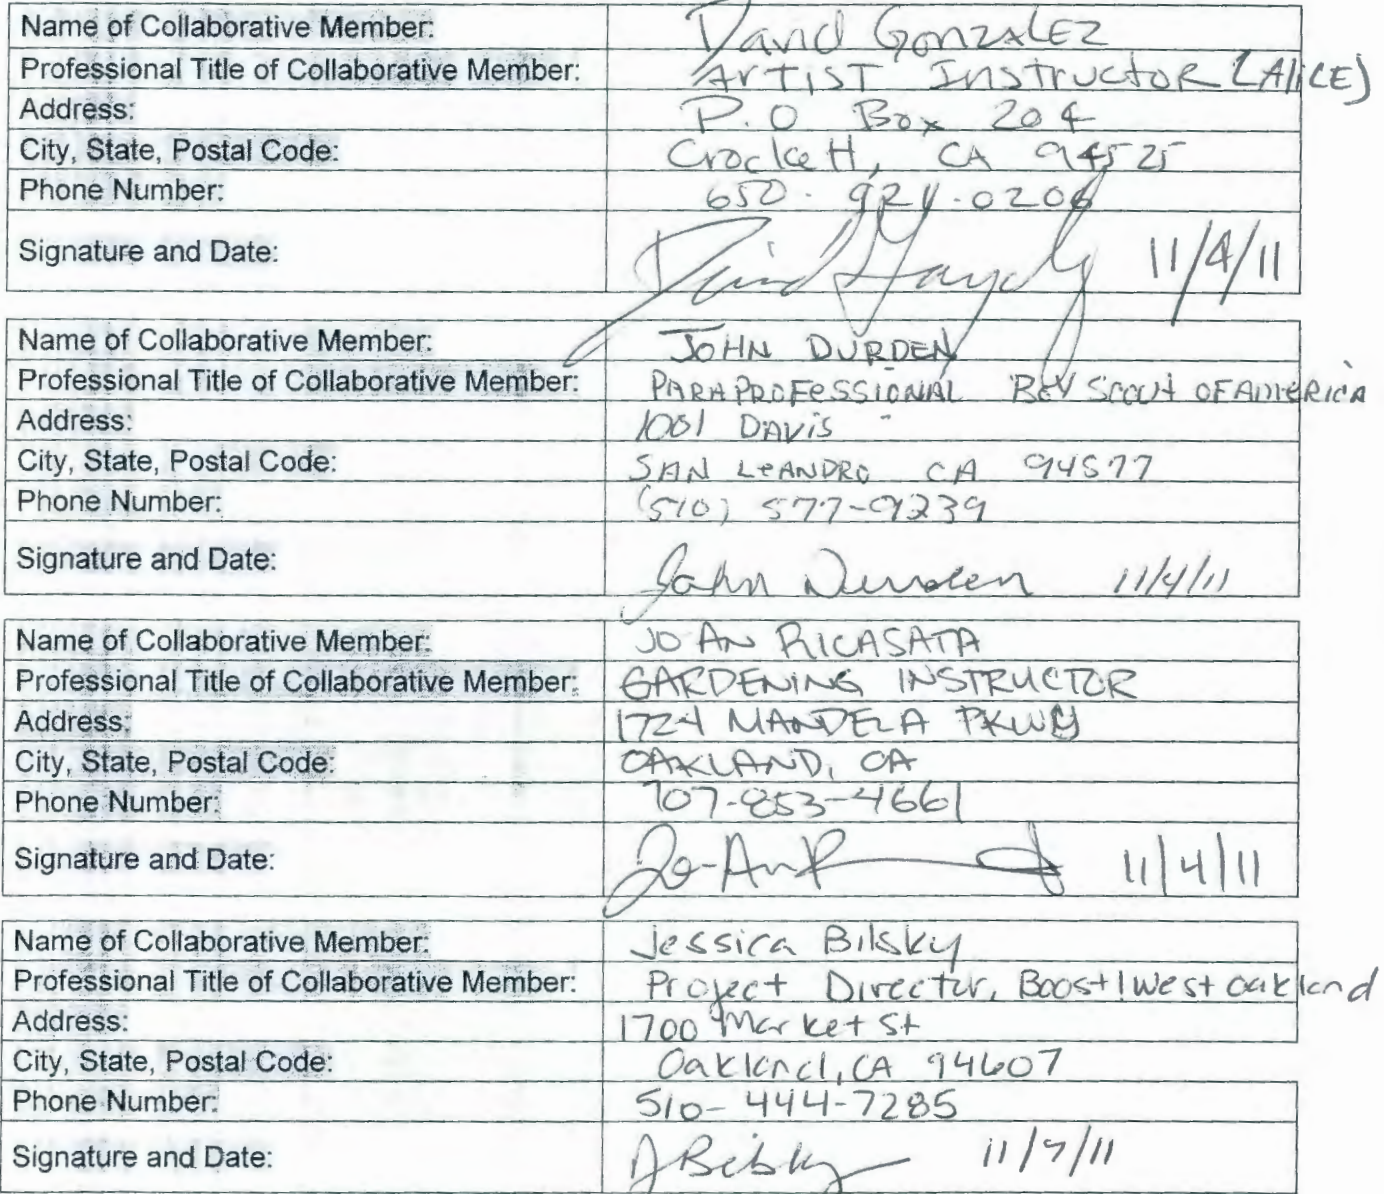 Name of Collaborative Member: David Gonzalez
Professional Title of Collaborative Member: Artist Instructor (Alice)
Address: P.O Box 204
City, State, Postal Code: Crockett, CA 94525
Phone Number: 650-924-0206
Signature and Date: 11/4/11
Name of Collaborative Member: JOHN DURDEN
Professional Title of Collaborative Member: PARAPROFESSIONAL BOY SCOUT OF AMERICA
Address: 1001 DAVIS
City, State, Postal Code: SAN LEANDRO CA 94577
Phone Number: (510) 577-9239
Signature and Date: John Durden 11/4/11
Name of Collaborative Member: JO AN RICASATA
Professional Title of Collaborative Member: GARDENING INSTRUCTOR
Address: 1724 MANDELA PKWY
City, State, Postal Code: OAKLAND, CA
Phone Number: 707-853-4661
Signature and Date: Jo-An R 11/4/11
Name of Collaborative Member: Jessica Bilsky
Professional Title of Collaborative Member: Project Director, Boost! West Oakland
Address: 1700 Market St
City, State, Postal Code: Oakland, CA 94607
Phone Number: 510-444-7285
Signature and Date: JBilsky 11/7/11